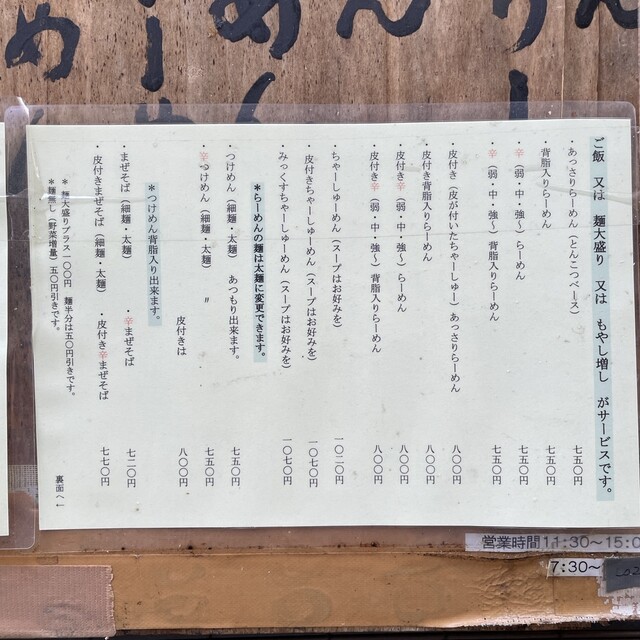 ご飯 又は 麺大盛り 又は もやし増し がサービスです。
・あっさりらーめん（とんこつベース） 七五〇円
背脂入りらーめん 七五〇円
・辛（弱・中・強〜）らーめん 七五〇円
・辛（弱・中・強〜）背脂入りらーめん 七五〇円
・皮付き（皮が付いたちゃーしゅー）あっさりらーめん 八〇〇円
・皮付き背脂入りらーめん 八〇〇円
・皮付き辛（弱・中・強〜）らーめん 八〇〇円
・皮付き辛（弱・中・強〜）背脂入りらーめん 八〇〇円
・ちゃーしゅーめん（スープはお好みを） 一〇二〇円
・皮付きちゃーしゅーめん（スープはお好みを） 一〇七〇円
・みっくすちゃーしゅーめん（スープはお好みを） 一〇七〇円
＊らーめんの麺は太麺に変更できます。
・つけめん（細麺・太麺） あつもり出来ます。 七五〇円
・辛つけめん（細麺・太麺） 〃 七五〇円
皮付きは 八〇〇円
＊つけめん背脂入り出来ます。
・まぜそば（細麺・太麺） ・辛まぜそば 七二〇円
・皮付きまぜそば（細麺・太麺） ・皮付き辛まぜそば 七七〇円
＊ 麺大盛りプラス一〇〇円 麺半分は五〇円引きです。
＊麺無し（野菜増量）五〇円引きです。
裏面へ↓
営業時間11:30〜15:0
7:30〜